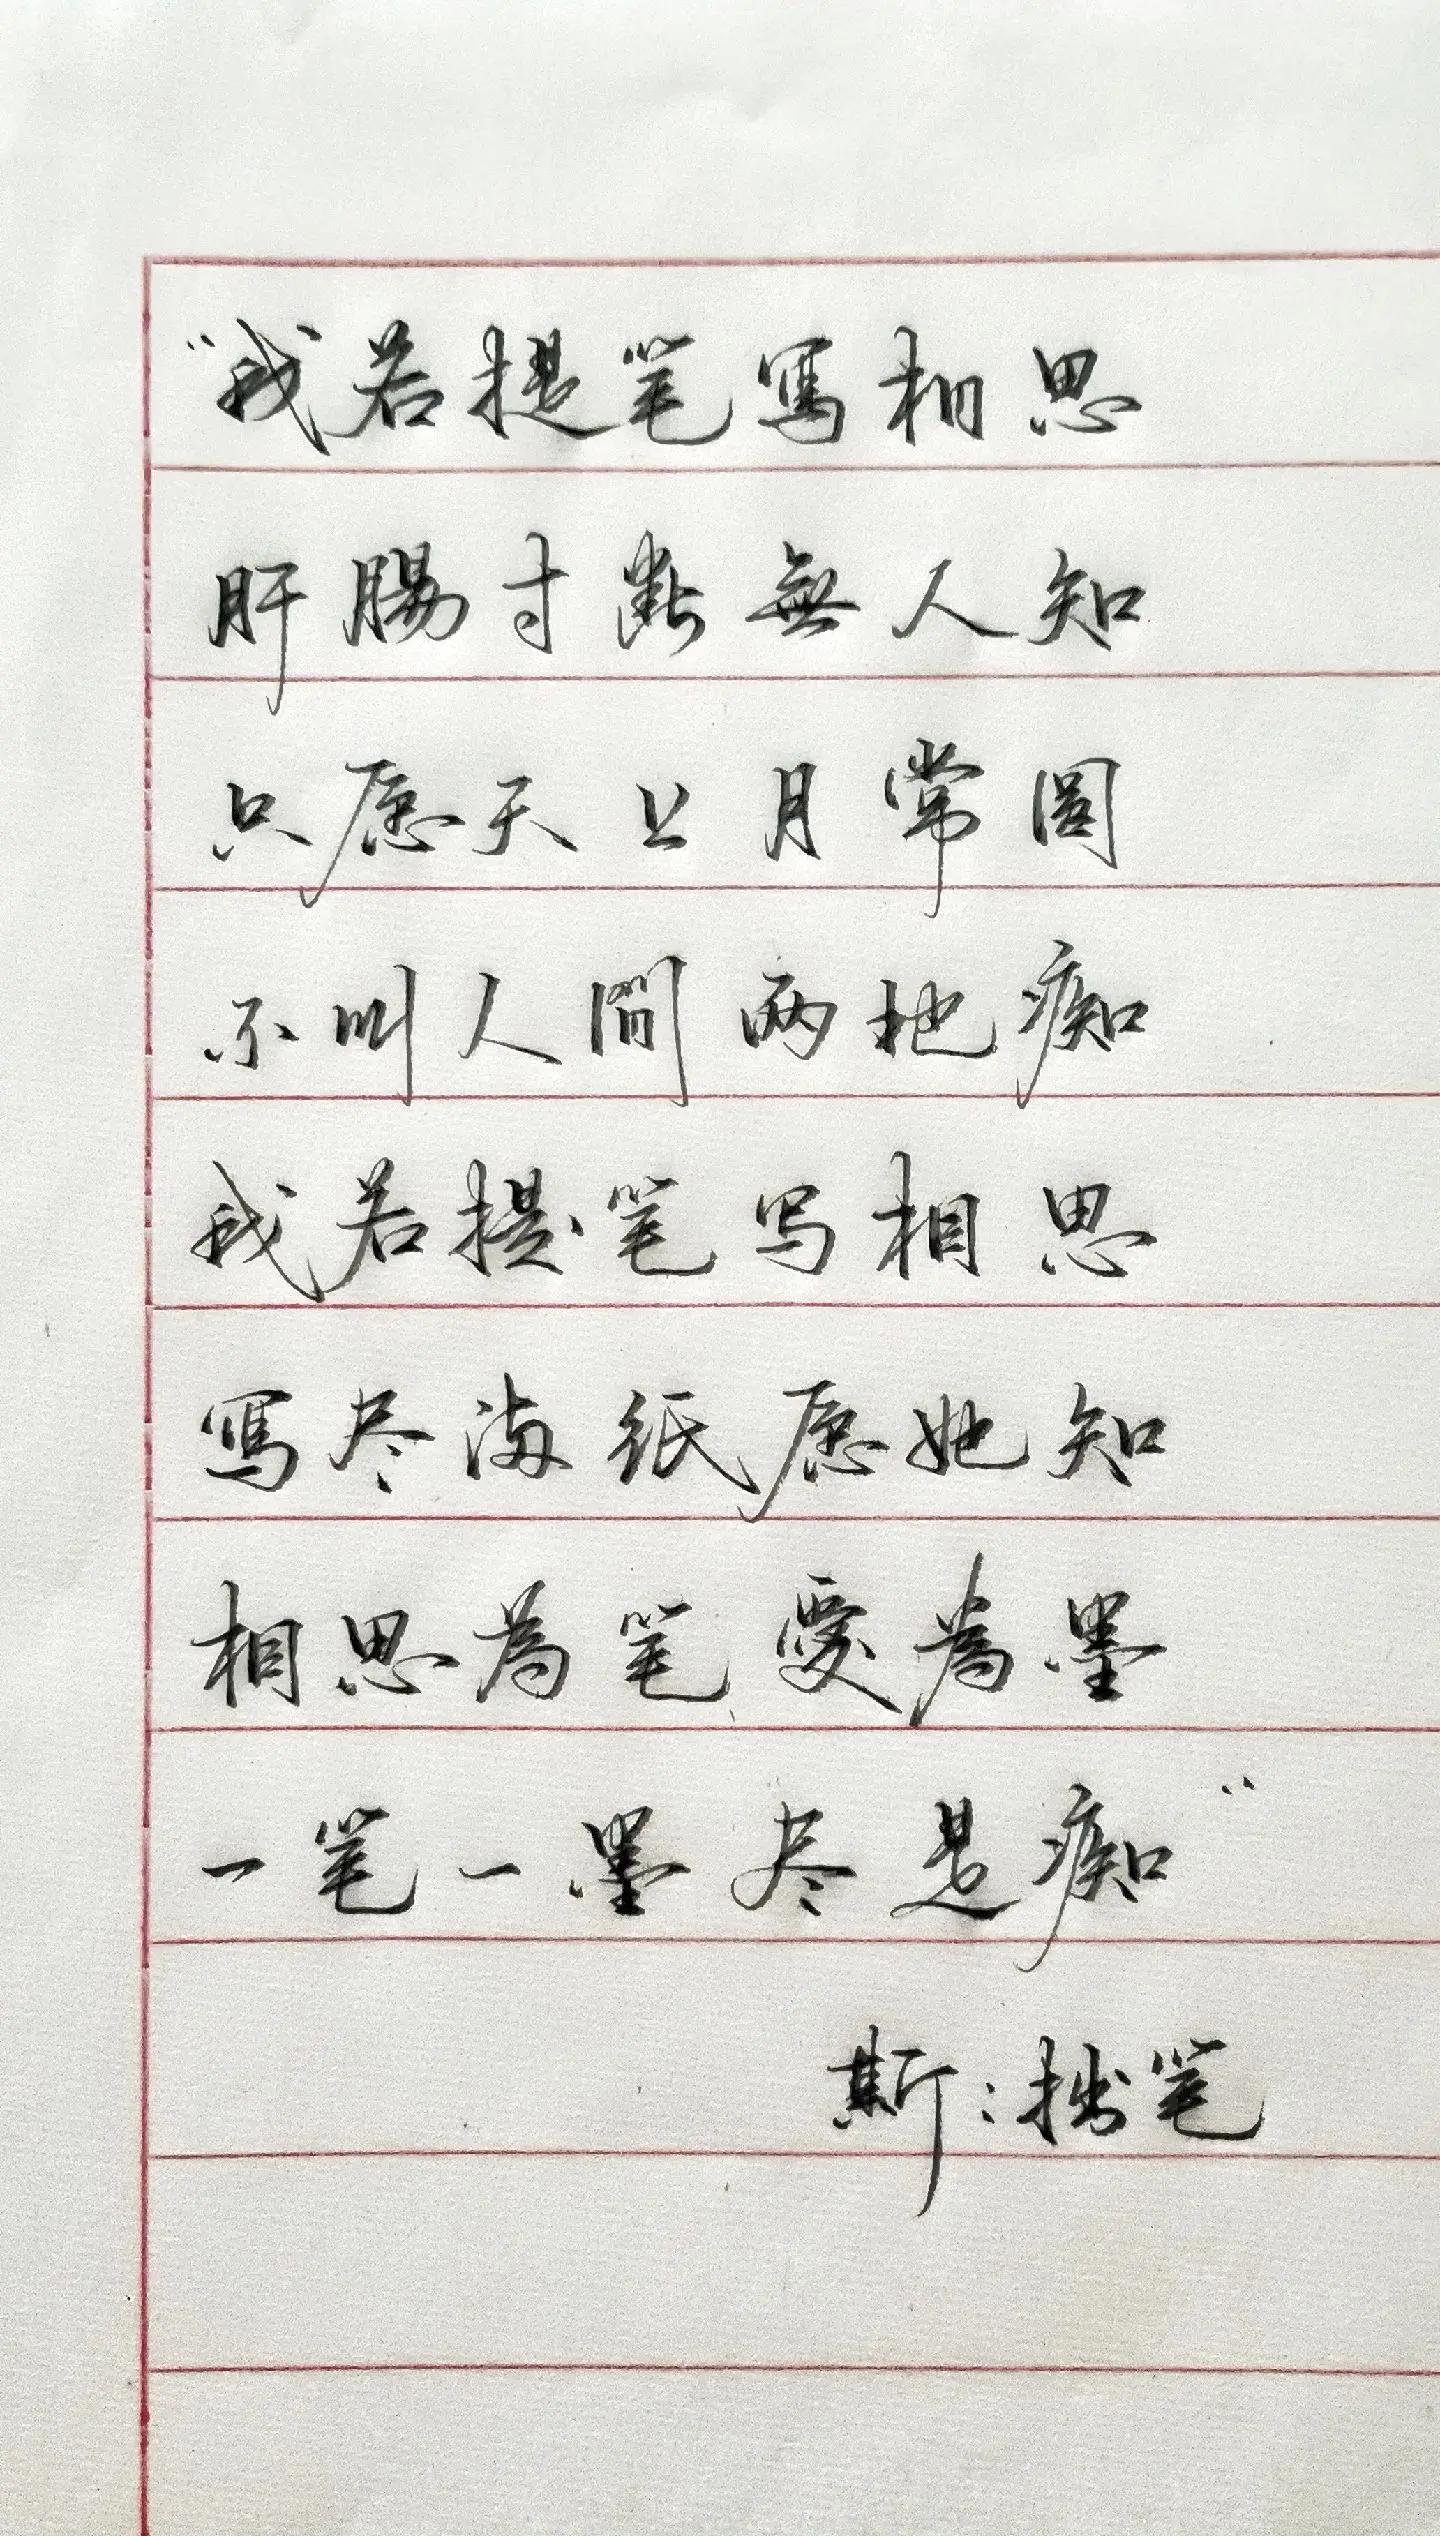 “我若提笔寫相思
肝腸寸斷無人知
只愿天上月常圆
不叫人間两地痴
我若提笔写相思
寫尽海纸愿她知
相思為笔愛為墨
一笔一墨尽是痴”
斯:拙笔